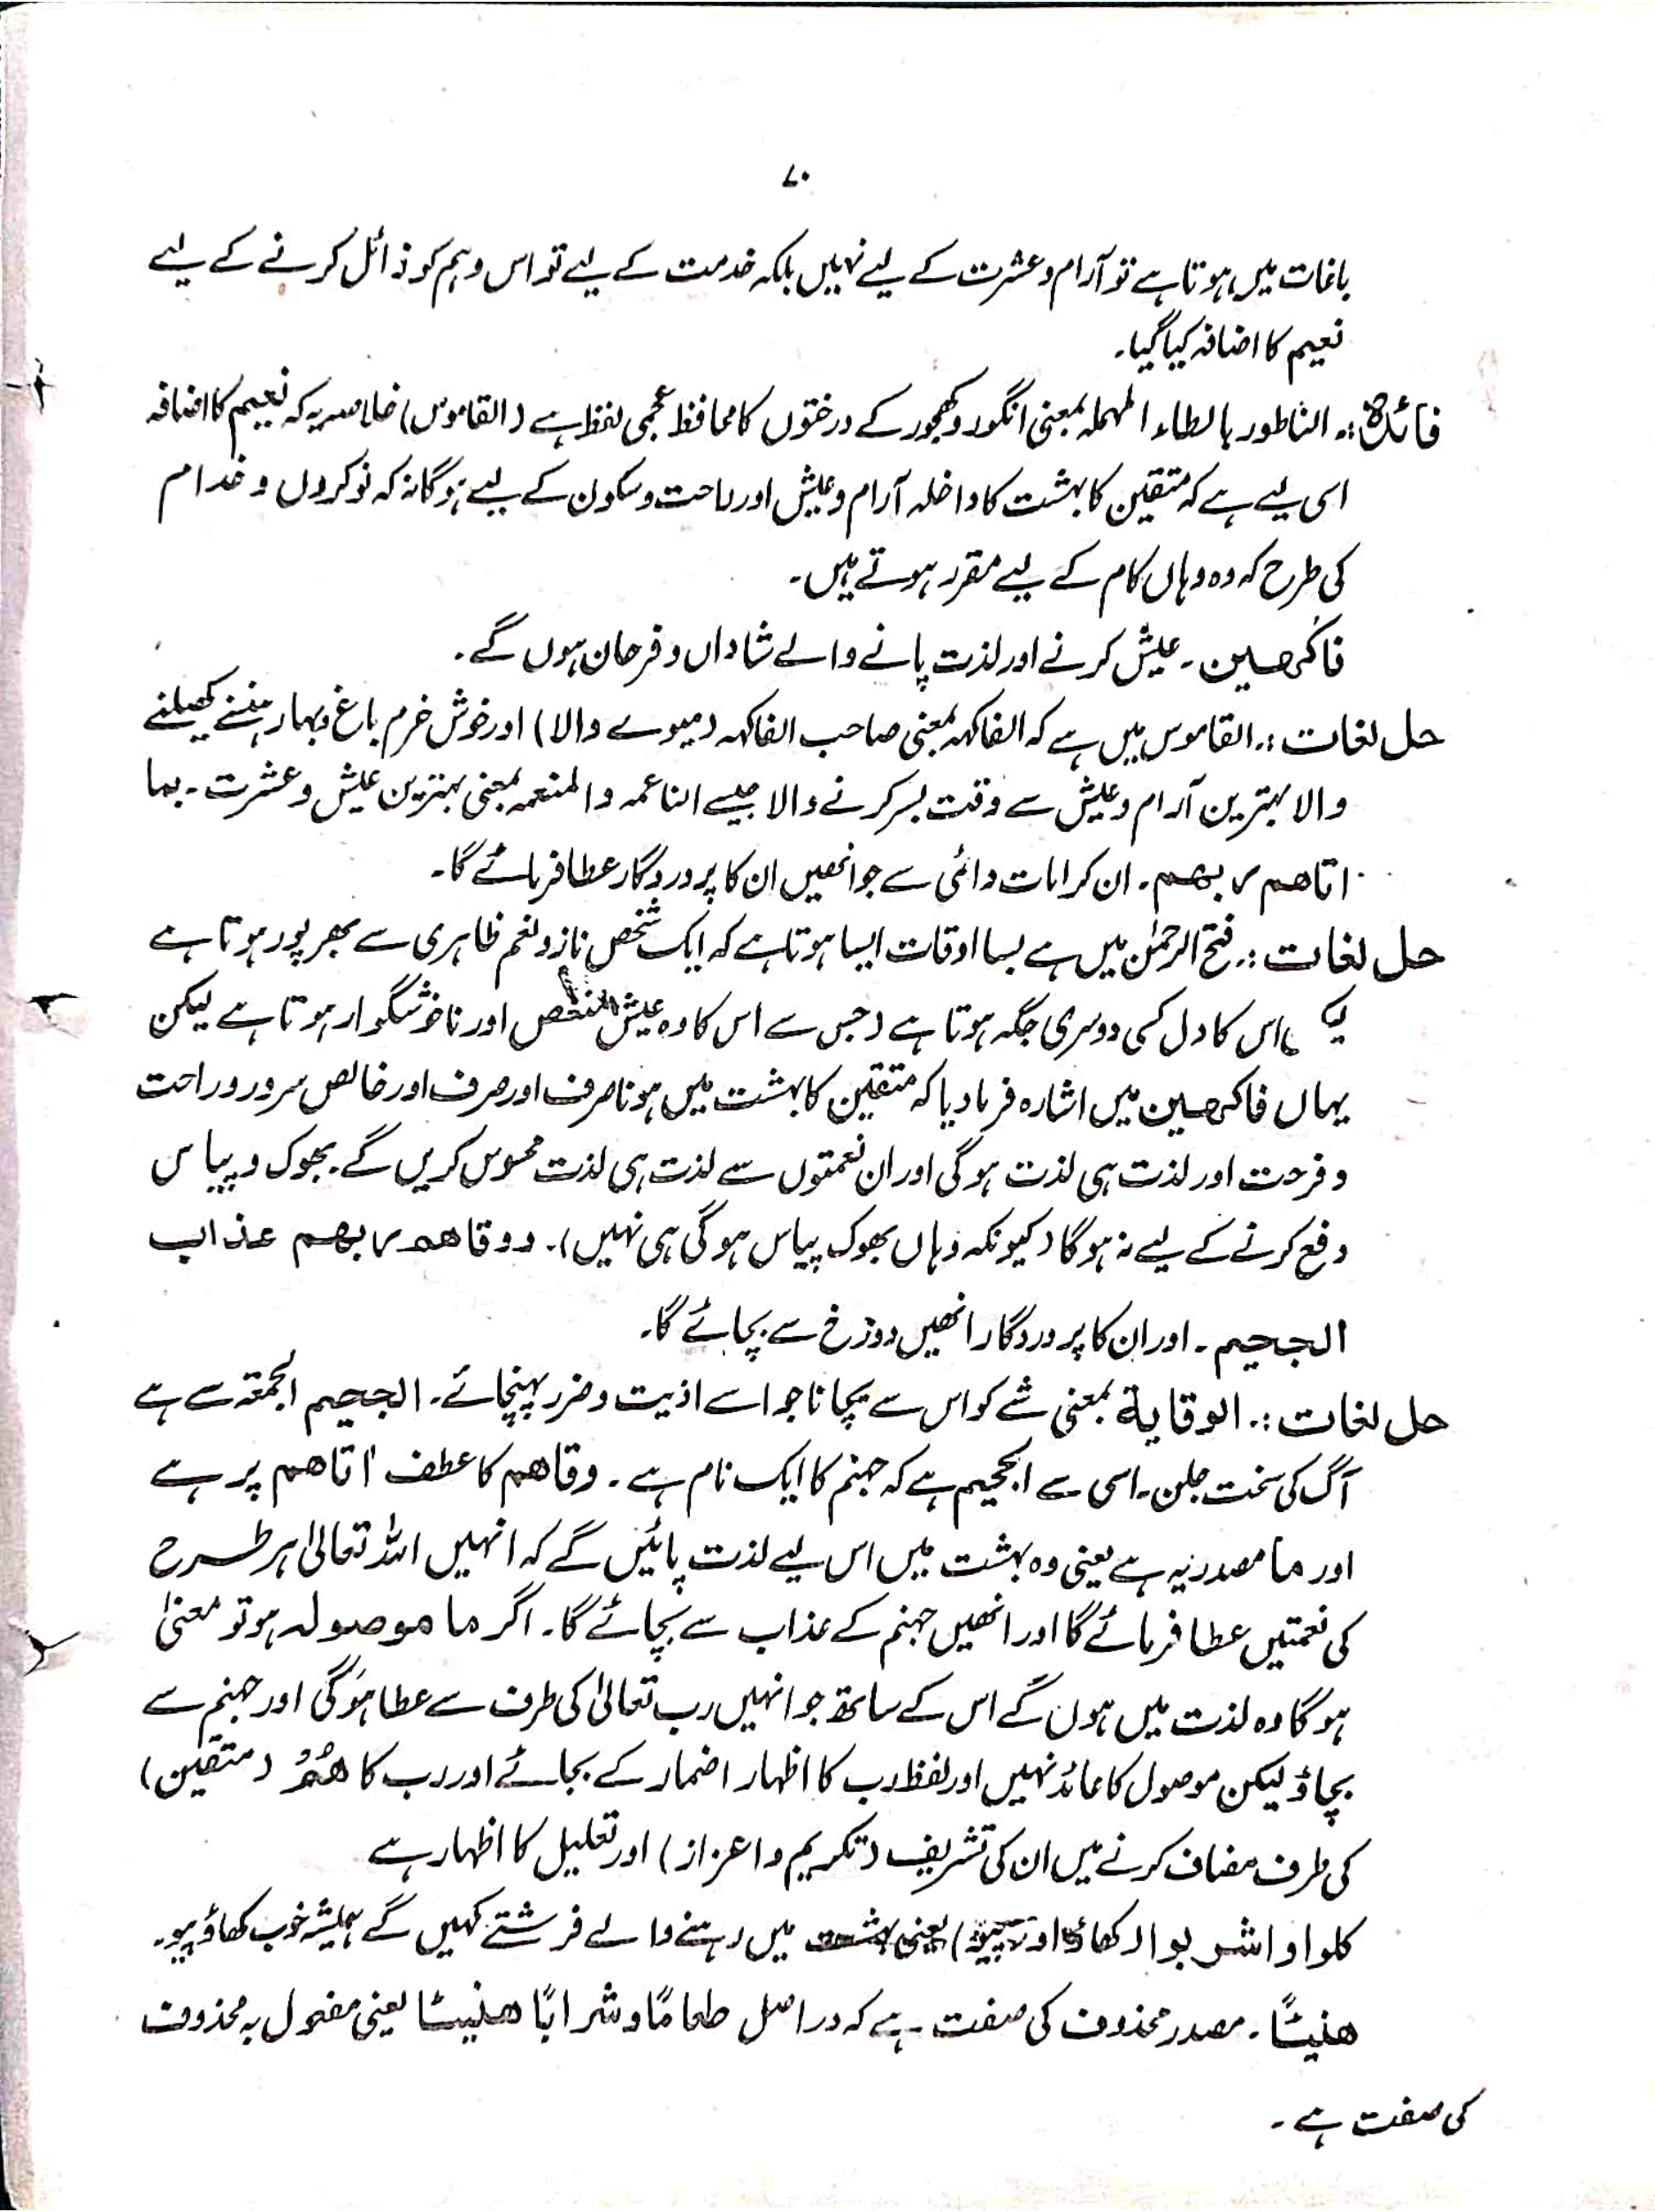 ۷۰
باغات میں ہوتا ہے تو آرام و عشرت کے لیے نہیں بلکہ خدمت کے لیے تو اس وہم کو ذائل کرنے کے لیے
نعیم کا اضافہ کیا گیا۔
فائدہ:۔ الناطور بالطاء المہملہ بمعنی انگور و کھجور کے درختوں کا محافظ عجمی لفظ ہے (القاموس) خلاصہ یہ کہ نعیم کا اضافہ
اسی لیے ہے کہ متقین کا بہشت کا داخلہ آرام و عیش اور راحت و سکون کے لیے ہوگا نہ کہ نوکروں و خدام
کی طرح کہ وہ وہاں کام کے لیے مقرر ہوتے ہیں۔
فاکھین۔ عیش کرنے اور لذت پانے والے شاداں و فرحان ہوں گے۔
حل لغات:۔ القاموس میں ہے کہ الفاکہہ بمعنی صاحب الفاکہہ (میوے والا) اور خوش خرم باغ و بہار ہنسنے کھیلنے
والا بہترین آرام و عیش سے وقت بسر کرنے والا جیسے الناعمہ والمنعمہ بمعنی بہترین عیش و عشرت۔ بما
اتاھم ربھم۔ ان کرامات دائمی سے جو انھیں ان کا پروردگار عطا فرمائے گا۔
حل لغات:۔ فتح الرحمٰن میں ہے بسا اوقات ایسا ہوتا ہے کہ ایک شخص ناز و نعم ظاہری سے بھرپور ہوتا ہے
اس کا دل کسی دوسری جگہ ہوتا ہے (جس سے اس کا وہ عیش منغص اور ناخوشگوار ہوتا ہے لیکن
یہاں فاکھین میں اشارہ فرما دیا کہ متقین کا بہشت میں ہونا صرف اور صرف اور خالص سرور و راحت
و فرحت اور لذت ہی لذت ہوگی اور ان نعمتوں سے لذت ہی لذت محسوس کریں گے۔ بھوک و پیاس
دفع کرنے کے لیے نہ ہوگا (کیونکہ وہاں بھوک پیاس ہوگی ہی نہیں)۔ ووقاھم ربھم عذاب
الجحیم۔ اور ان کا پروردگار انھیں دوزخ سے بچائے گا۔
حل لغات:۔ الوقایة بمعنی شے کو اس سے بچانا جو اسے اذیت و ضرر پہنچائے۔ الجحیم الجمتہ سے ہے
آگ کی سخت جلن۔ اسی سے الجحیم ہے کہ جہنم کا ایک نام ہے۔ وقاھم کا عطف اٰتاھم پر ہے
اور ما مصدریہ ہے یعنی وہ بہشت میں اس لیے لذت پائیں گے کہ انہیں اللہ تعالیٰ ہر طرح
کی نعمتیں عطا فرمائے گا اور انھیں جہنم کے عذاب سے بچائے گا۔ اگر ما موصولہ ہو تو معنیٰ
ہوگا وہ لذت میں ہوں گے اس کے ساتھ جو انہیں رب تعالیٰ کی طرف سے عطا ہوگی اور جہنم سے
بچاؤ لیکن موصول کا عائد نہیں اور لفظ رب کا اظہار اضمار کے بجائے اور رب کا ھُمْ (متقین)
کی طرف مضاف کرنے میں ان کی تشریف (تکریم و اعزاز) اور تعلیل کا اظہار ہے
کلوا واشربوا (کھاؤ اور پیو) یعنی بہشت میں رہنے والے فرشتے کہیں گے ہمیشہ خوب کھاؤ پیو۔
ھنیئًا۔ مصدر محذوف کی صفت ہے کہ دراصل طعامًا و شرابًا ھنیئا یعنی مفعول بہ محذوف
کی صفت ہے۔